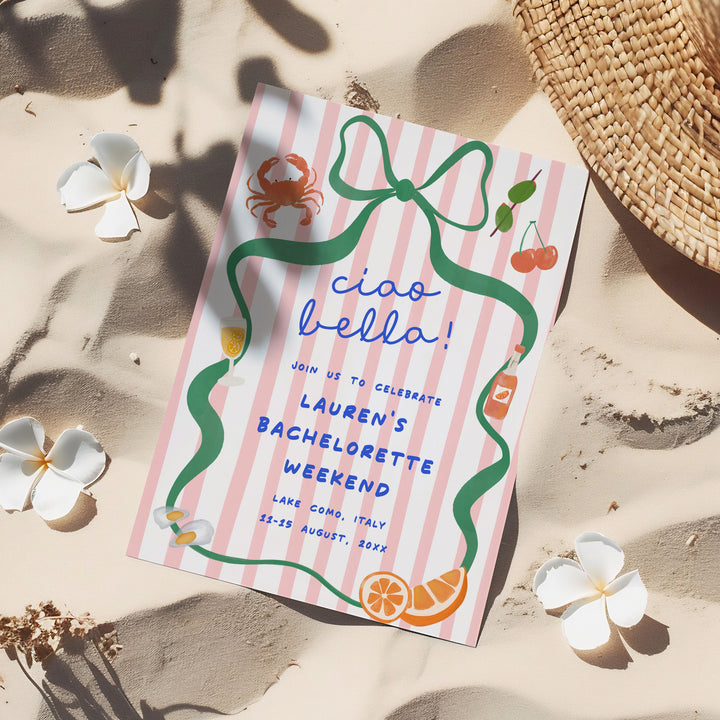 ciao
bella!
JOIN US TO CELEBRATE
LAUREN'S
BACHELORETTE
WEEKEND
LAKE COMO, ITALY
22-25 AUGUST, 20XX